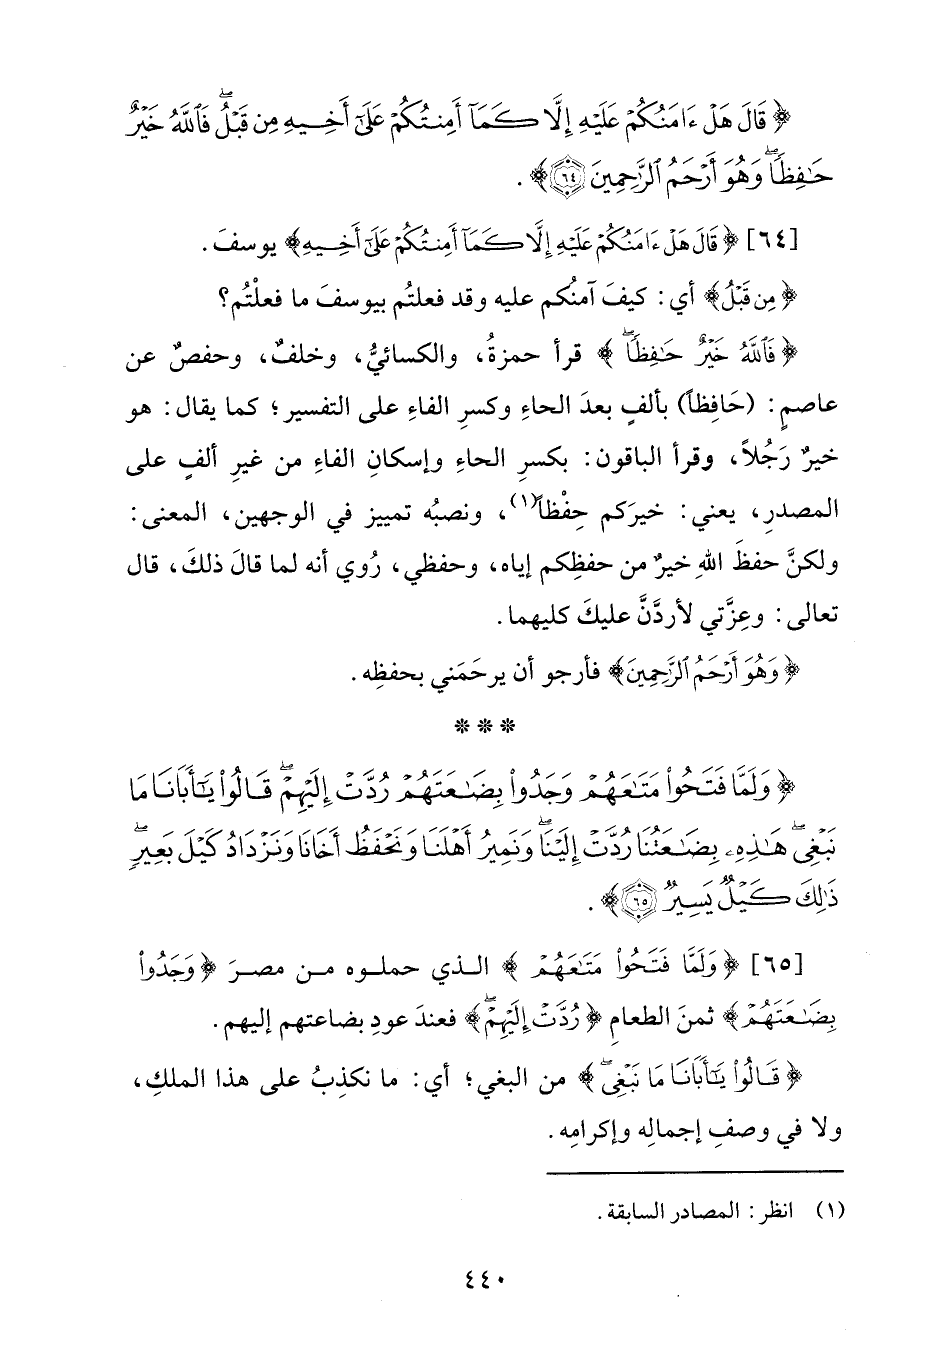 ﴿ قَالَ هَلْ ءَامَنُكُمْ عَلَيْهِ إِلَّا كَمَآ أَمِنتُكُمْ عَلَىٰٓ أَخِيهِ مِن قَبْلُ ۖ فَٱللَّهُ خَيْرٌ
حَـٰفِظًا ۖ وَهُوَ أَرْحَمُ ٱلرَّٰحِمِينَ ٦٤ ﴾ .
[٦٤] ﴿ قَالَ هَلْ ءَامَنُكُمْ عَلَيْهِ إِلَّا كَمَآ أَمِنتُكُمْ عَلَىٰٓ أَخِيهِ ﴾ يوسفَ .
﴿ مِن قَبْلُ ﴾ أي : كيفَ آمنُكم عليه وقد فعلتُم بيوسفَ ما فعلْتُم؟
﴿ فَٱللَّهُ خَيْرٌ حَـٰفِظًا ۖ ﴾ قرأ حمزةُ، والكسائيُّ، وخلفٌ، وحفصٌ عن
عاصمٍ : (حَافِظاً) بألفٍ بعدَ الحاءِ وكسرِ الفاءِ على التفسير؛ كما يقال: هو
خيرٌ رَجُلاً، وقرأ الباقون: بكسرِ الحاءِ وإسكانِ الفاءِ من غيرِ ألفٍ على
المصدرِ، يعني: خيرَكم حِفْظاً(١)، ونصبُه تمييز في الوجهين، المعنى:
ولكنَّ حفظَ اللهِ خيرٌ من حفظِكم إياه، وحفظي، رُوي أنه لما قالَ ذلكَ، قال
تعالى: وعِزَّتي لأردَّنَّ عليكَ كليهما.
﴿ وَهُوَ أَرْحَمُ ٱلرَّٰحِمِينَ ﴾ فأرجو أن يرحَمَني بحفظِه.
* * *
﴿ وَلَمَّا فَتَحُوا۟ مَتَـٰعَهُمْ وَجَدُوا۟ بِضَـٰعَتَهُمْ رُدَّتْ إِلَيْهِمْ ۖ قَالُوا۟ يَـٰٓأَبَانَا مَا
نَبْغِى ۖ هَـٰذِهِۦ بِضَـٰعَتُنَا رُدَّتْ إِلَيْنَا ۖ وَنَمِيرُ أَهْلَنَا وَنَحْفَظُ أَخَانَا وَنَزْدَادُ كَيْلَ بَعِيرٍ ۖ
ذَٰلِكَ كَيْلٌ يَسِيرٌ ٦٥ ﴾ .
[٦٥] ﴿ وَلَمَّا فَتَحُوا۟ مَتَـٰعَهُمْ ﴾ الذي حملوه من مصرَ ﴿ وَجَدُوا۟
بِضَـٰعَتَهُمْ ﴾ ثمنَ الطعامِ ﴿ رُدَّتْ إِلَيْهِمْ ۖ ﴾ فعندَ عودِ بضاعتهم إليهم.
﴿ قَالُوا۟ يَـٰٓأَبَانَا مَا نَبْغِى ۖ ﴾ من البغي؛ أي: ما نكذِبُ على هذا الملكِ،
ولا في وصفِ إجمالِه وإكرامِه.
(١) انظر: المصادر السابقة.
٤٤٠